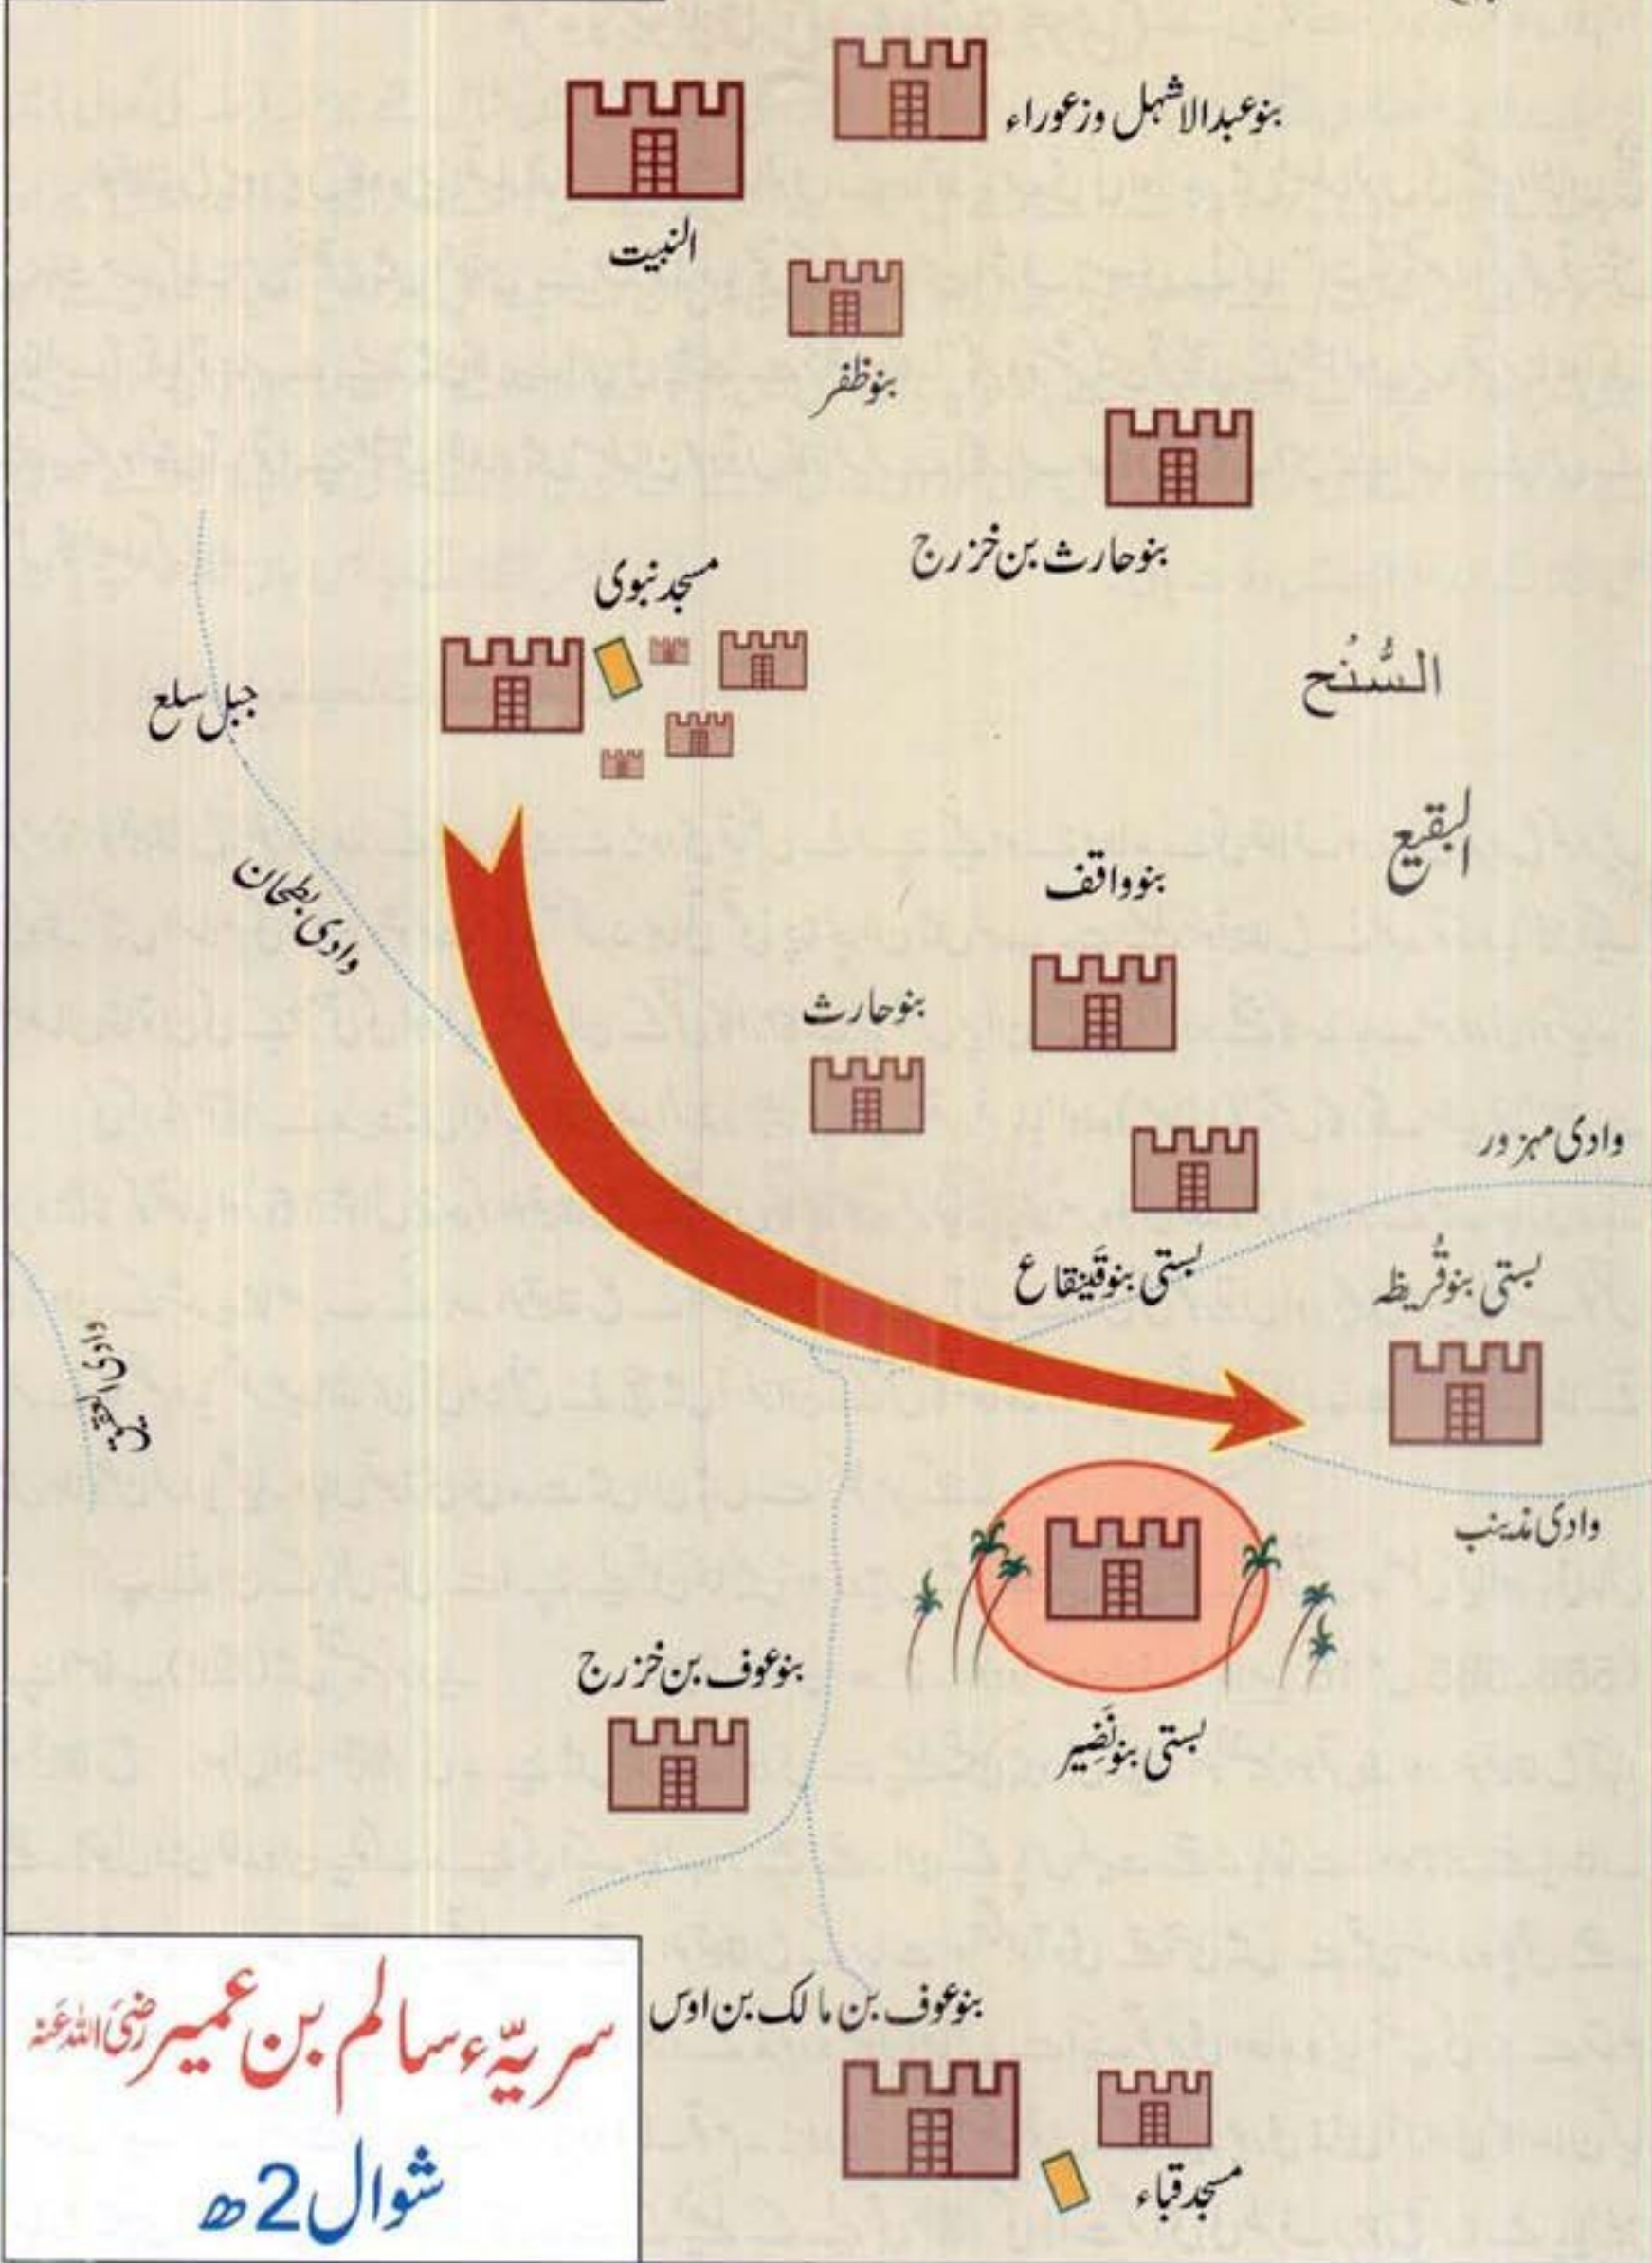 بنو عبدالاشہل وزعوراء
النبیت
بنو ظفر
بنو حارث بن خزرج
مسجد نبوی
السُّنْح
جبل سلع
البقیع
بنو واقف
وادی بطحان
بنو حارث
وادی مہزور
بستی بنو قَینقاع
بستی بنو قُریظہ
وادی العقیق
وادی مذینب
بنو عوف بن خزرج
بستی بنو نَضِیر
بنو عوف بن مالک بن اوس
مسجد قباء
سریّہء سالم بن عمیر رضی اللہ عنہ
شوال 2ھ